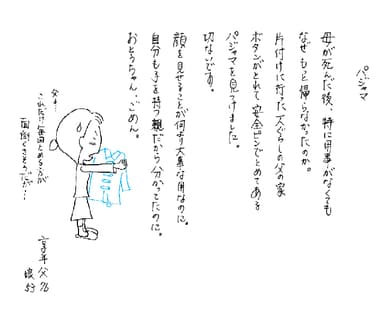 パジャマ
母が死んだ後、特に用事がなくても
なぜもっと帰らなかったのか。
片付けに行った一人ぐらしの父の家
ボタンがとれて安全ピンでとめてある
パジャマを見つけました。
切ないです。
顔を見せることが何より大事な用なのに。
自分も子を持つ親だから分かってたのに。
おとうちゃん、ごめん。
父よ…
これだけ毎回とめる方が
面倒くさそうだが…
享年 父 76
娘 53